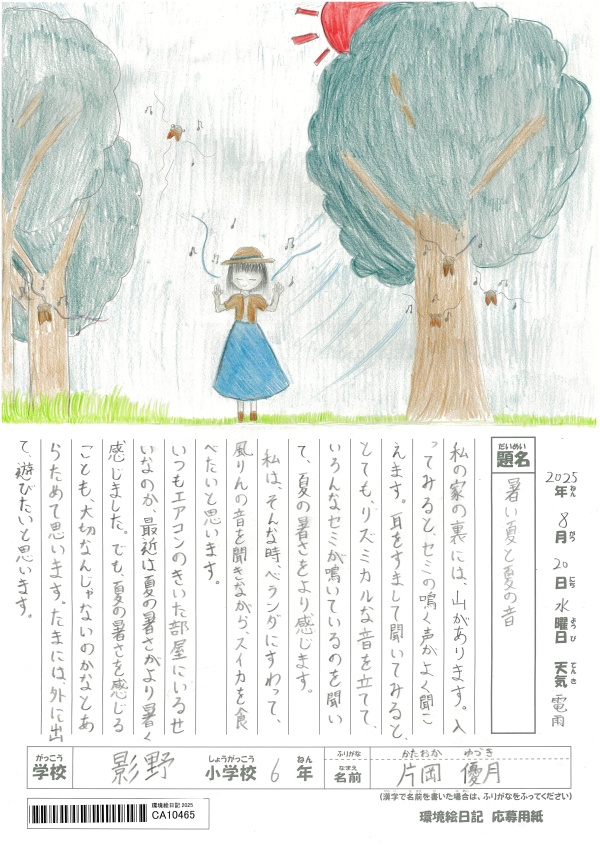 2025年ねん 8月がつ 20日にち 水曜日ようび 天気てんき 雷雨
題名だいめい 暑い夏と夏の音
私の家の裏には、山があります。入
ってみると、セミの鳴く声がよく聞こ
えます。耳をすまして聞いてみると、
とても、リズミカルな音を立てて、
いろんなセミが鳴いているのを聞い
て、夏の暑さをより感じます。
私は、そんな時、ベランダにすわって、
風りんの音を聞きながら、スイカを食
べたいと思います。
いつもエアコンのきいた部屋にいるせ
いなのか、最近は夏の暑さがより暑く
感じました。でも、夏の暑さを感じる
ことも、大切なんじゃないのかなとあ
らためて思います。たまには、外に出
て、遊びたいと思います。
学校がっこう 影野 小学校しょうがっこう 6 年ねん ふりがな かたおか ゆづき
名前なまえ 片岡 優月
(漢字で名前を書いた場合は、ふりがなをふってください)
環境絵日記 2025
CA10465
環境絵日記 応募用紙